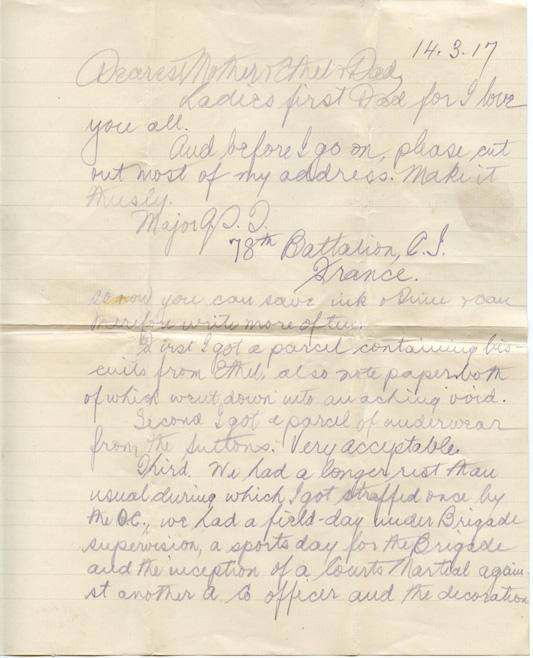 14.3.17
Dearest Mother & Ethel & Dad,
Ladies first Dad for I love
you all.
And before I go on, please cut
out most of my address. Make it
thusly.
Major
78th Battalion, C.I.
France.
so now you can save ink & time & can
therefore write more often.
First I got a parcel containing bis-
cuits from Ethel, also note paper both
of which went down into an aching void.
Second I got a parcel of underwear
from the Suttons. Very acceptable.
Third. We had a longer rest than
usual during which I got straffed once by
the O.C., we had a field-day under Brigade
supervision, a sports day for the Brigade
and the inception of a Courts Martial again-
st another a Co officer and the decoration